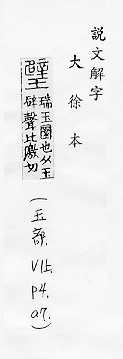 說文解字
大徐本
璧
瑞玉圜也从玉
辟聲比激切
(玉部, V1上, P4, a7.)